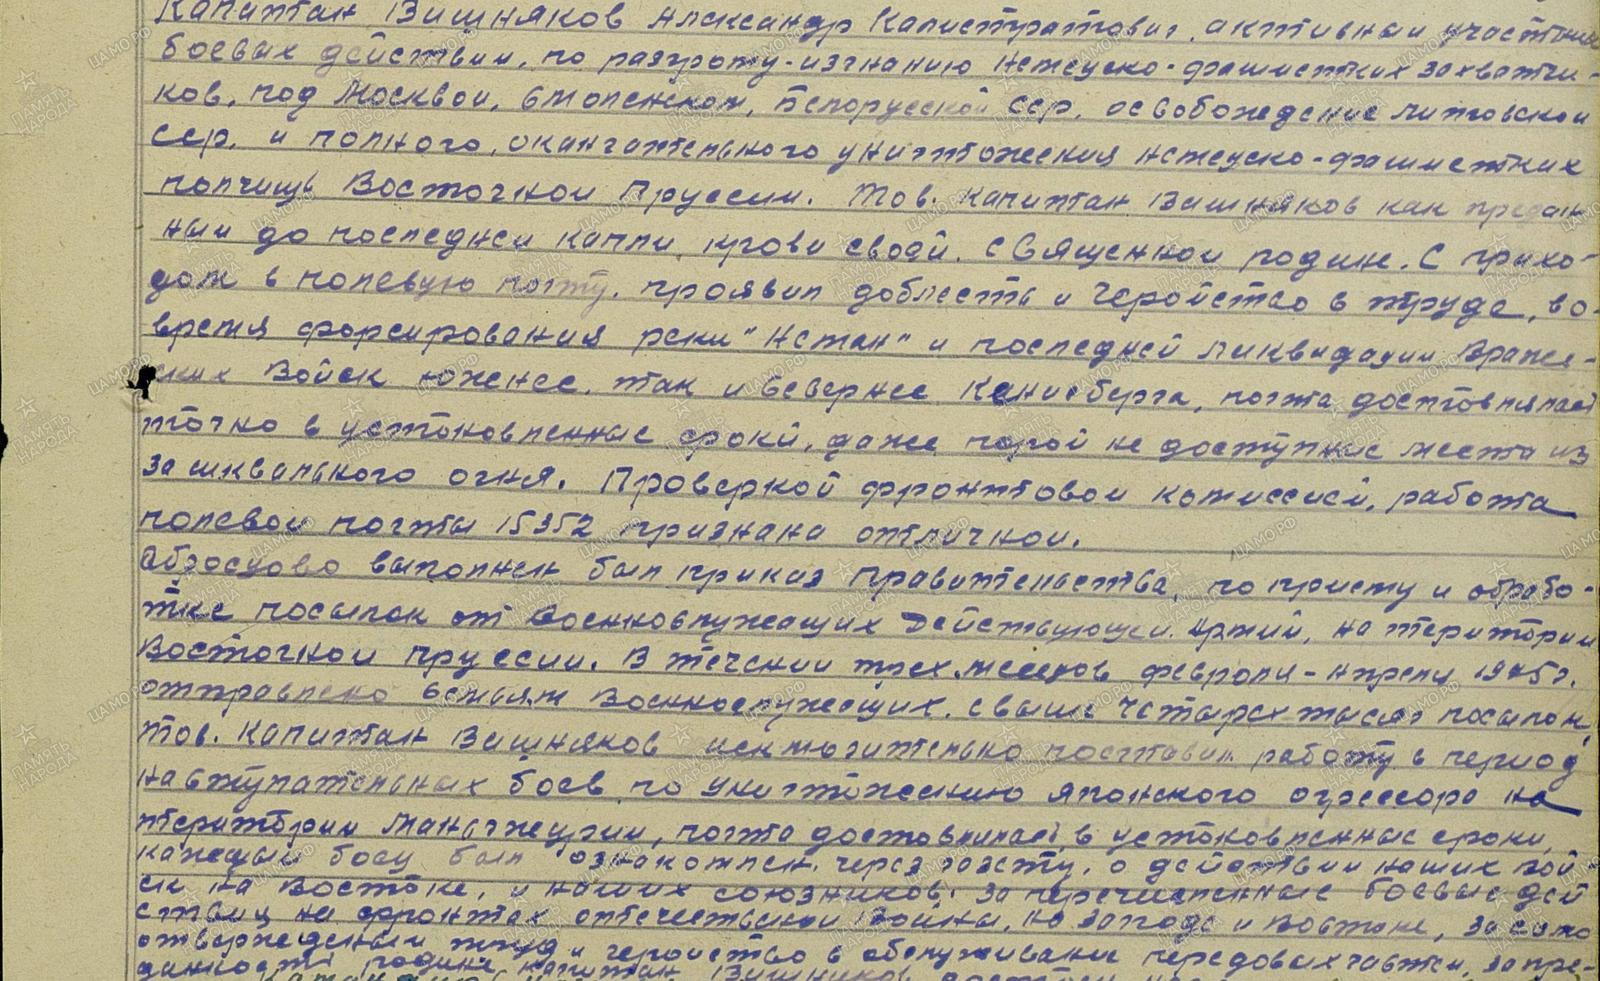 Капитан Вишняков Александр Калистратович, активный участник
боевых действии, по разгрому-изгнанию немецко-фашистких захватчи-
ков, под Москвой, Смоленском, Белорусской сср, освобождение литовской
сср, и полного, окан­чательного уничтожения немецко-фашистких
полчищь Восточной Пруссии. Тов. Капитан Вишняков как предан
ный до последней каппи, крови своей, священной родине. С прихо-
дом в полевую почту, проявил доблесть и геройство в труде, во-
время форсирования реки "Неман" и последней ликвидации враже-
ских войск южнее, так и севернее Кенисберга, почта достовлялась
точно в устоновленные сроки, даже порой не доступные места из
за шквального огня. Проверкой фронтовой комиссией, работа
полевой почты 15352 признана отличной.
Оброзцово выполнен был приказ Правительства, по приему и обрабо-
тке посылок от военновлужащих Действующей Армии, на територии
Восточной Пруссии. В течении трех месецов февроля-Апреля 1945г.
отправлено семьям Военнослужещих, свыше четырех тысяч посылок,
тов. Капитан Вишняков исключительно поставил работу в период
навтупательных боев по уничтожению японского агрессора на
територии Маньчжурии, почта достовлялась в устоновленные сроки,
кажедый боец был ознакомлен, через газету, о действии наших вой
ск на востоке, и наших союзников. За перечисленные боевые дей
ствия на фронтах отечественной войны, на западе и востоке, за само
отверждедный труд и геройство в обслуживании передовых частей, за пре-
данность родине капитан Вишняков